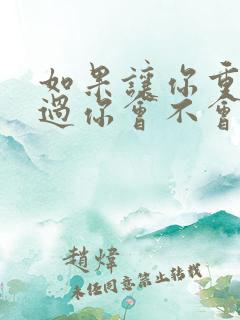 如果讓你重
過你會不會
趙煒
未經同意禁止轉載